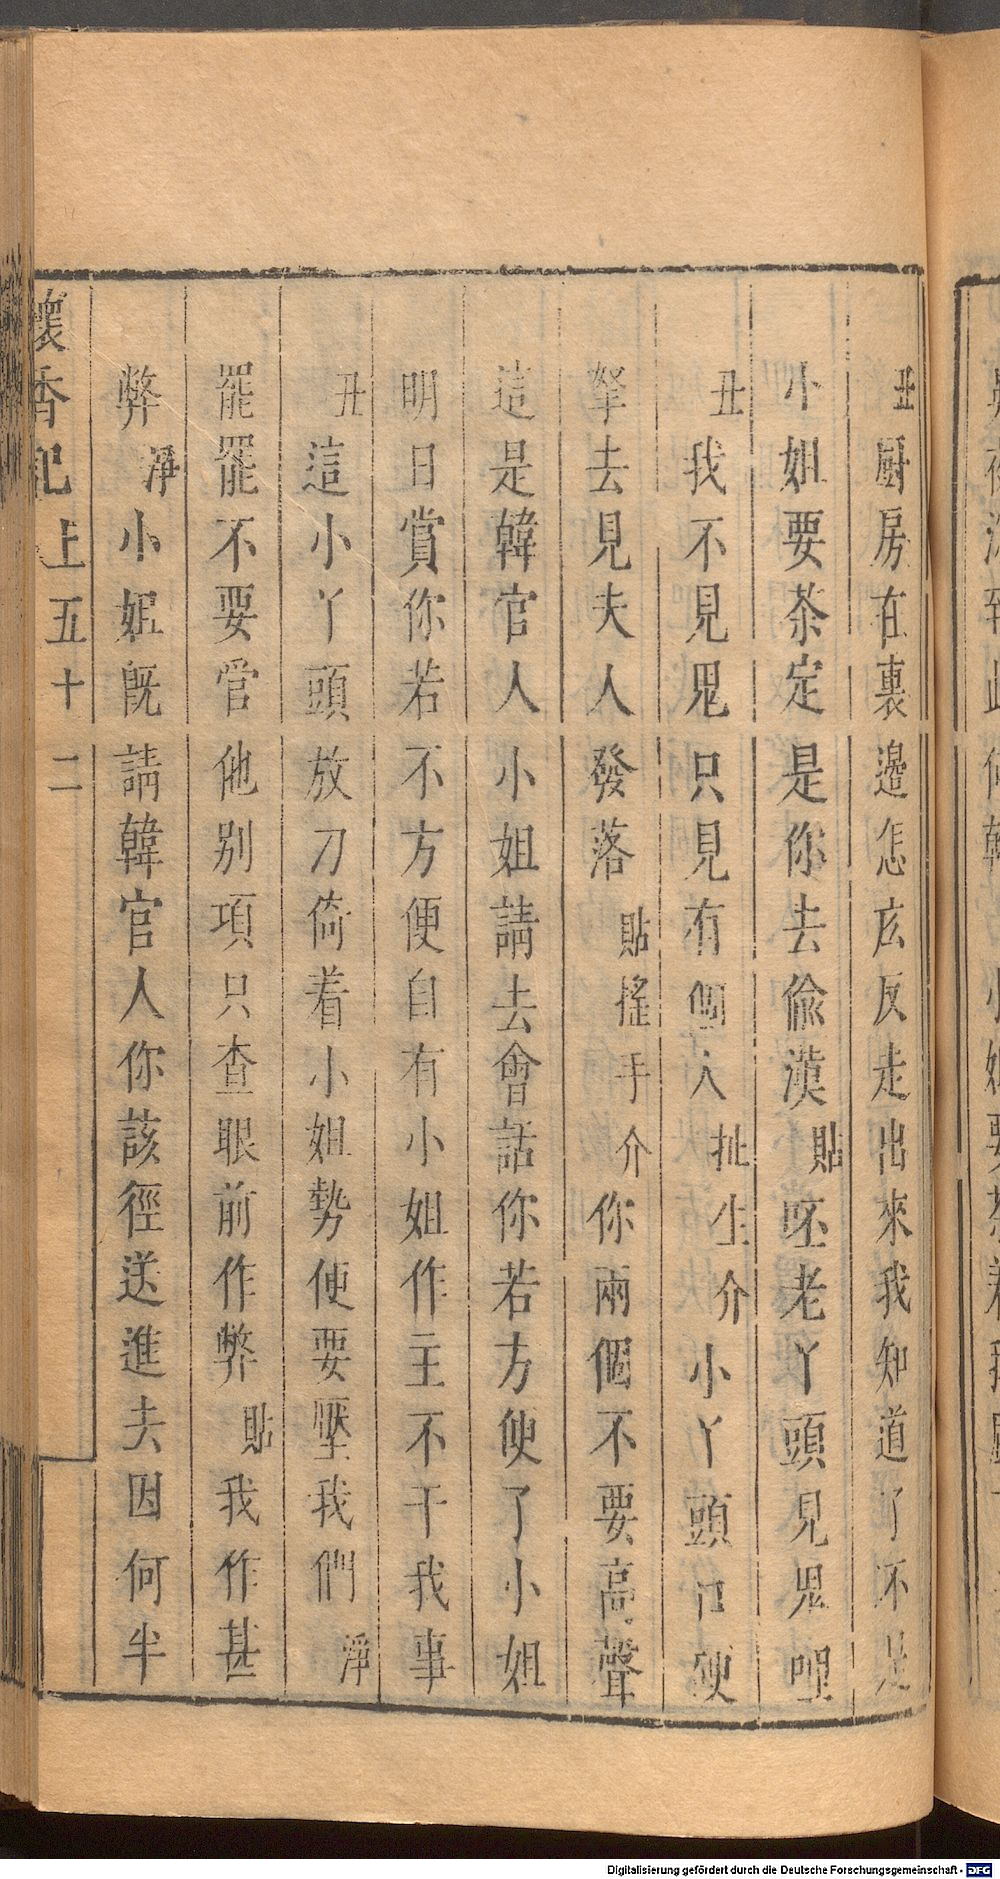 丑厨房在裏邊怎么反走出來我知道了不是
小姐要茶定是你去偸漢貼呸老丫頭見鬼哩
丑我不見鬼只見有個人扯生介小丫頭口硬
拏去見夫人發落貼搖手介你兩個不要高聲
這是韓官人小姐請去會話你若方便了小姐
明日賞你若不方便自有小姐作主不干我事
丑這小丫頭放刀倚着小姐勢便要壓我們淨
罷罷不要管他别項只查眼前作弊貼我作甚
弊淨小姐旣請韓官人你該徑送進去因何半
懷香記上五十二
Digitalisierung gefördert durch die Deutsche Forschungsgemeinschaft - DFG